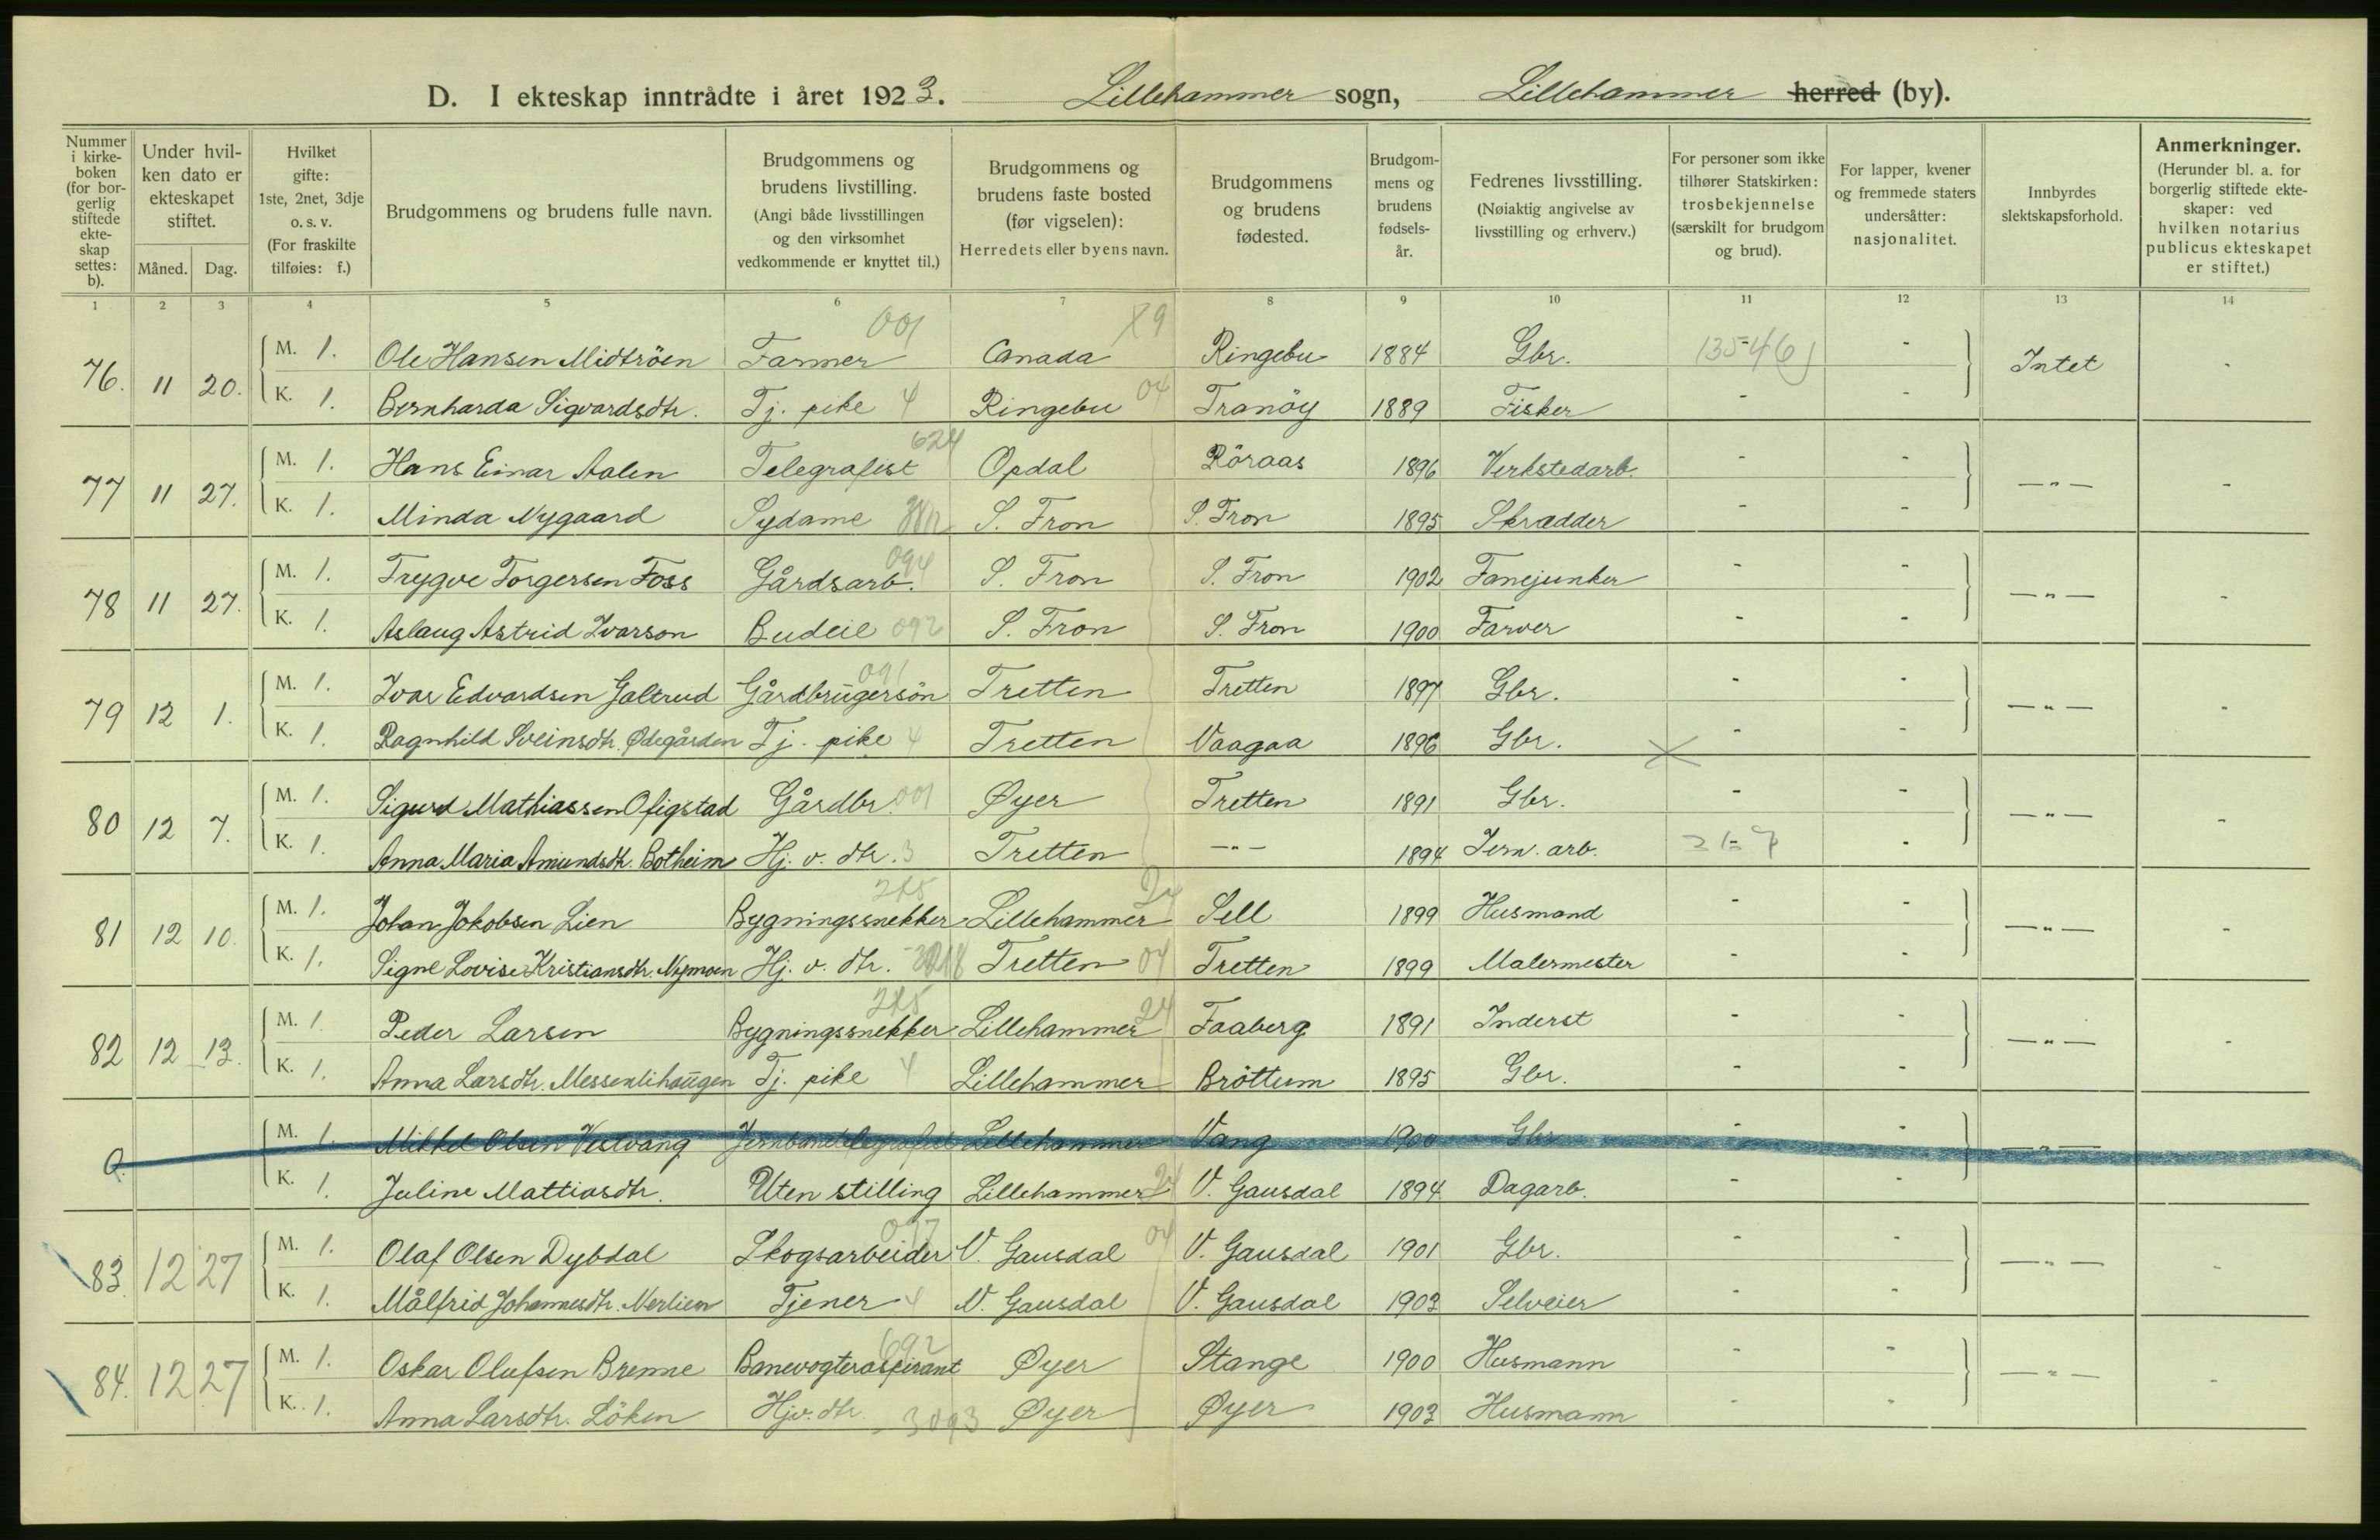 D. I ekteskap inntrådte i året 1923. Lillehammer sogn, Lillehammer herred (by).
Nummer i kirkeboken (for borgerlig stiftede ekteskap settes: b).
Under hvilken dato er ekteskapet stiftet.
Måned. Dag.
Hvilket gifte: 1ste, 2net, 3dje o. s. v. (For fraskilte tilføies: f.)
Brudgommens og brudens fulle navn.
Brudgommens og brudens livstilling. (Angi både livsstillingen og den virksomhet vedkommende er knyttet til.)
Brudgommens og brudens faste bosted (før vigselen): Herredets eller byens navn.
Brudgommens og brudens fødested.
Brudgommens og brudens fødselsår.
Fedrenes livsstilling. (Nøiaktig angivelse av livsstilling og erhverv.)
For personer som ikke tilhører Statskirken: trosbekjennelse (særskilt for brudgom og brud).
For lapper, kvener og fremmede staters undersåtter: nasjonalitet.
Innbyrdes slektskapsforhold.
Anmerkninger. (Herunder bl. a. for borgerlig stiftede ekteskaper: ved hvilken notarius publicus ekteskapet er stiftet.)
1 2 3 4 5 6 7 8 9 10 11 12 13 14
76. 11 20. M. 1. Ole Hansen Midtröen Farmer 001 Canada Ringebu 1884 Gbr. - Intet -
K. 1. Bernharda Sigvardsdtr. Tj. pike 4 Ringebu 04 Tranöy 1889 Fisker - -
77 11 27. M. 1. Hans Einar Aalen Telegrafist 624 Opdal Röraas 1896 Verkstedarb. - - —"— -
K. 1. Minda Nygaard Sydame S. Fron S. Fron 1895 Skrædder - -
78 11 27. M. 1. Trygve Torgersen Foss Gårdsarb. 094 S. Fron S. Fron 1902 Fanejunker - - —"— -
K. 1. Aslaug Astrid Ivarson Budeie 092 S. Fron S. Fron 1900 Farver - -
79 12 1. M. 1. Ivar Edvardsen Galtrud Gårdbrugersön 091 Tretten Tretten 1897 Gbr. - - —"— -
K. 1. Ragnhild Sveinsdtr. Ødegården Tj. pike 4 Tretten Vaagaa 1896 Gbr. - -
80 12 7. M. 1. Sigurd Mathiassen Ofigstad Gårdbr. 001 Øyer Tretten 1891 Gbr. - - —"— -
K. 1. Anna Maria Amundsdtr. Botheim Hj. v. dtr. 3 Tretten —"— 1894 Jern. arb. -
81 12 10. M. 1. Johan Jakobsen Lien Bygningssnekker Lillehammer 24 Sell 1899 Husmand - - —"— -
K. 1. Signe Lovise Kristiansdtr. Nymoen Hj. v. dtr. Tretten 04 Tretten 1899 Malermester - -
82 12 13. M. 1 Peder Larsen Bygningssnekker Lillehammer 24 Faaberg 1891 Inderst - - —"— -
K. 1. Anna Larsdtr. Messenlihaugen Tj. pike 4 Lillehammer Bröttum 1895 Gbr. - -
M. 1. Mikkel Olsen Vestvang Jernbanetelegrafist Lillehammer Vang 1900 Gbr - - —"—
K. 1. Juline Mattiasdtr. Uten stilling Lillehammer 24 V. Gausdal 1894 Dagarb. - -
83 12 27 M. 1. Olaf Olsen Dybdal Skogsarbeider 097 V. Gausdal 04 V. Gausdal 1901 Gbr. - - —"— -
K. 1. Målfrid Johannesdtr. Nerlien Tjener 4 V. Gausdal V. Gausdal 1903 Selveier - -
84. 12 27 M. 1. Oskar Olufsen Brenne Banevogteraspirant 692 Øyer Stange 1900 Husmann - - —"— -
K. 1. Anna Larsdtr. Löken Hjv. dtr. 3093 Øyer Øyer 1903 Husmann - -